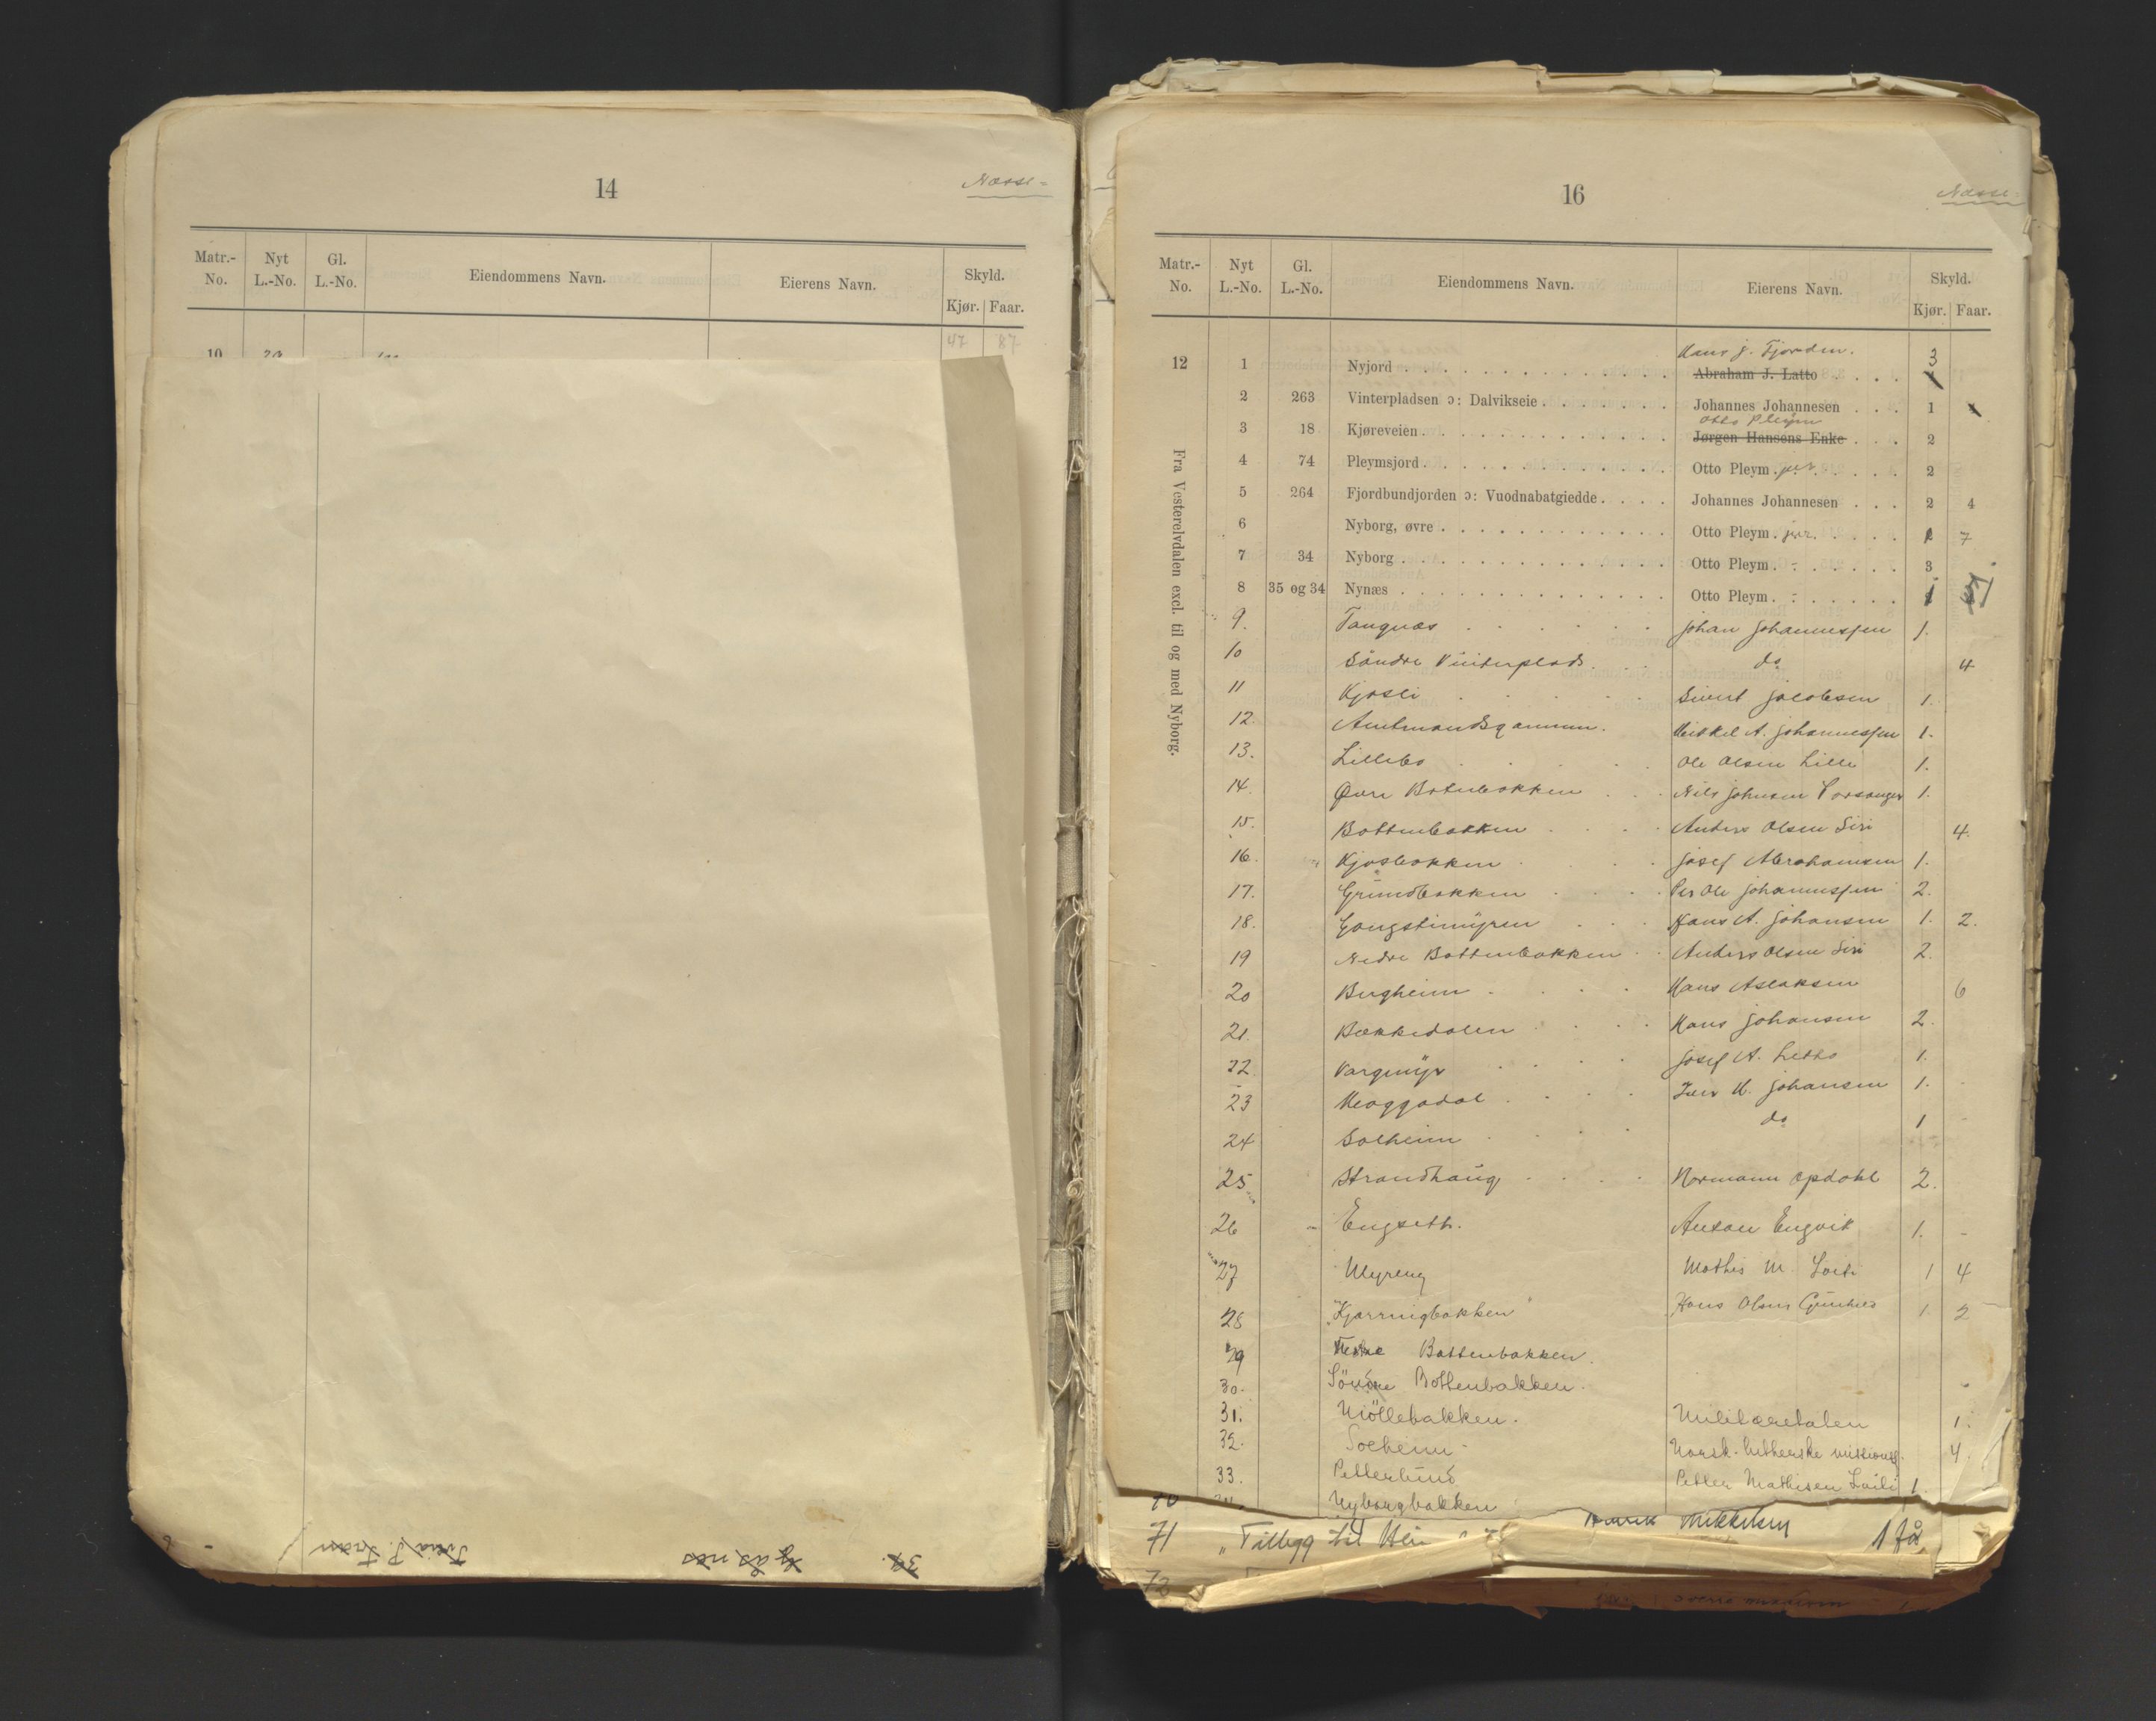 14
Nesse-
Matr.-No. Nyt L.-No. Gl. L.-No. Eiendommens Navn. Eierens Navn. Skyld. Kjør. Faar.
47 87
10
16
Nesse-
Matr.-No. Nyt L.-No. Gl. L.-No. Eiendommens Navn. Eierens Navn. Skyld. Kjør. Faar.
Fra Vesterelvdalen excl. til og med Nyborg.
Hans J. Fjorden. 3
12 1 Nyjord Abraham J. Latto
2 263 Vinterpladsen ɔ: Dalvikseie Johannes Johannesen 1
Otto Pleym
3 18 Kjøreveien Jørgen Hansens Enke 2
4 74 Pleymsjord Otto Pleym jnr. 2
5 264 Fjordbundjorden ɔ: Vuodnabatgiedde Johannes Johannesen 2 4
6 Nyborg, øvre Otto Pleym jnr. 7
7 34 Nyborg Otto Pleym 3
8 35 og 34 Nynæs Otto Pleym
9. Tangnæs Johan Johannessen 1.
10 Söndre Vinterplads do 4
11 Kjosli Sivert Jacobsen 1.
12. Amtmandsgammen. Mikkel A. Johannessen 1.
13. Lillebo Ole Olsen Lille 1.
14. Øvre Botnbakken Nils Johnsen Porsanger 1.
15. Bottenbakken Anders Olsen Siri 4.
16. Kjosbakken Josef Abrahamsen 1.
17. Grundbakken Per Ole Johannessen 2.
18. Gangstimyren Hans A. Johansen 1. 2.
19 Nedre Bottenbakken Anders Olsen Siri 2.
20 Bergheim Hans Aslaksen 6
21. Bekkedalen Hans Johansen 2.
22 Vargmyr Josef A. Letto 1.
23 Meaggadal Iver K. Johansen 1.
24 Solheim do 1
25 Strandhaug Normann Opdahl 2.
26 Engseth. Anton Engvik 1.
27 Myreng Mathis M. 1 4
28 "Kjærringbakken" Hans Olsen 1. 2
29 Bottenbakken.
30. Söndre Bottenbakken.
31. Möllebakken. Militæretaten 1.
32. Solheim Norsk-lutherske missionsf. 4.
33. Petterlund Petter Mathisen Laiti 1.
Nyborgbakken
71 "Tillegg til Mikkelsen 1 få
72
34. Ty